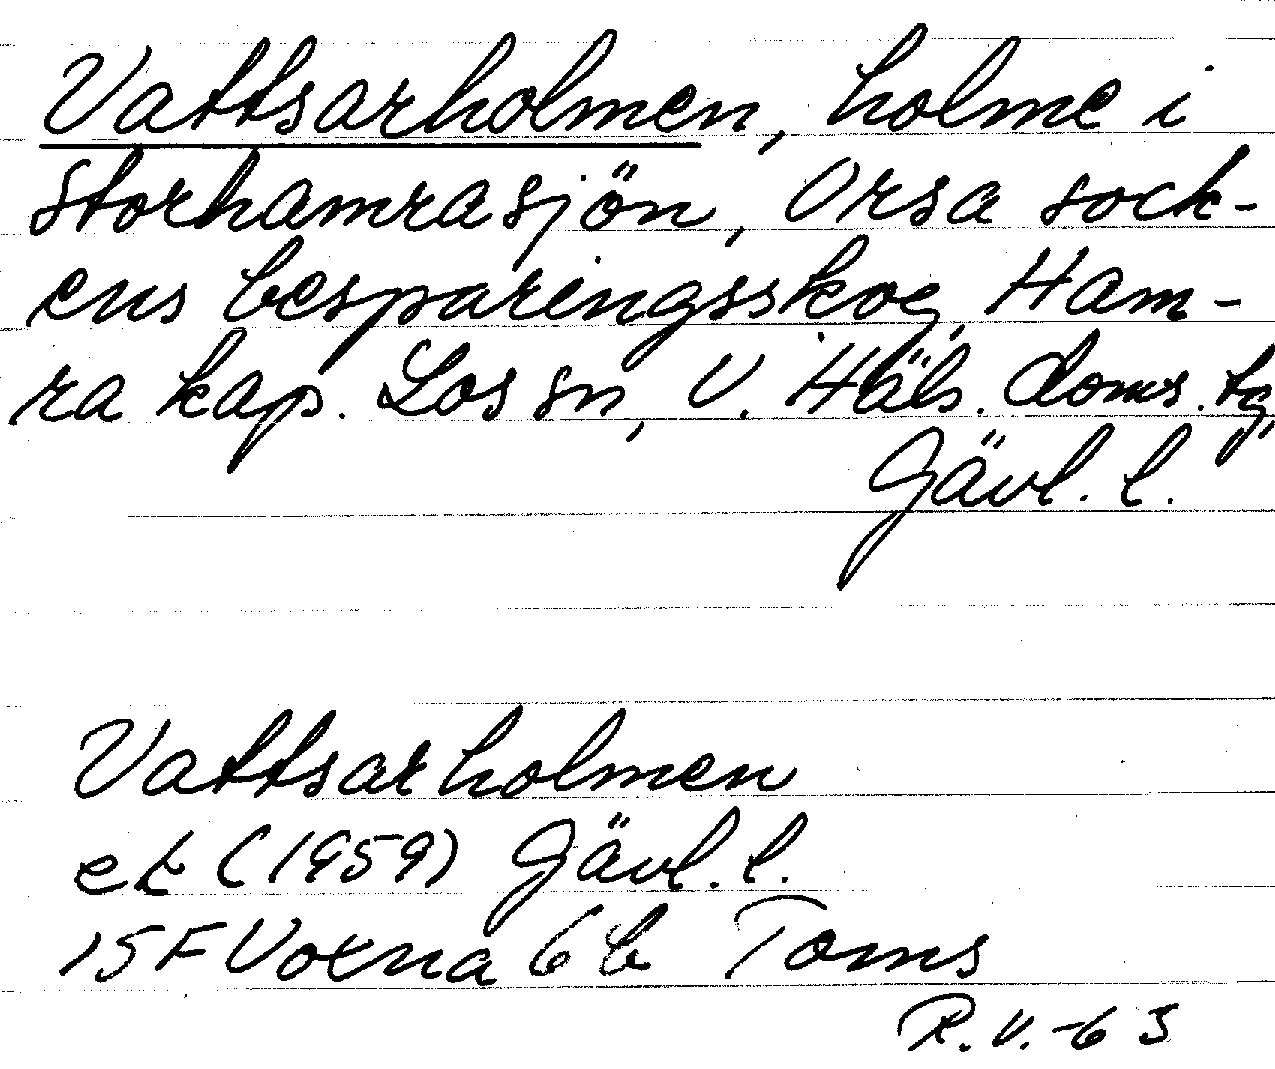 Vattsarholmen, holme i
Storhamrasjön, Orsa sock-
ens besparingsskog, Ham-
ra kap. Los sn, V. Häls. doms. tg,
Gävl. l.
Vattsarholmen
ek (1959) Gävl. l.
15F Voxna 6b Toms
R.V.-63